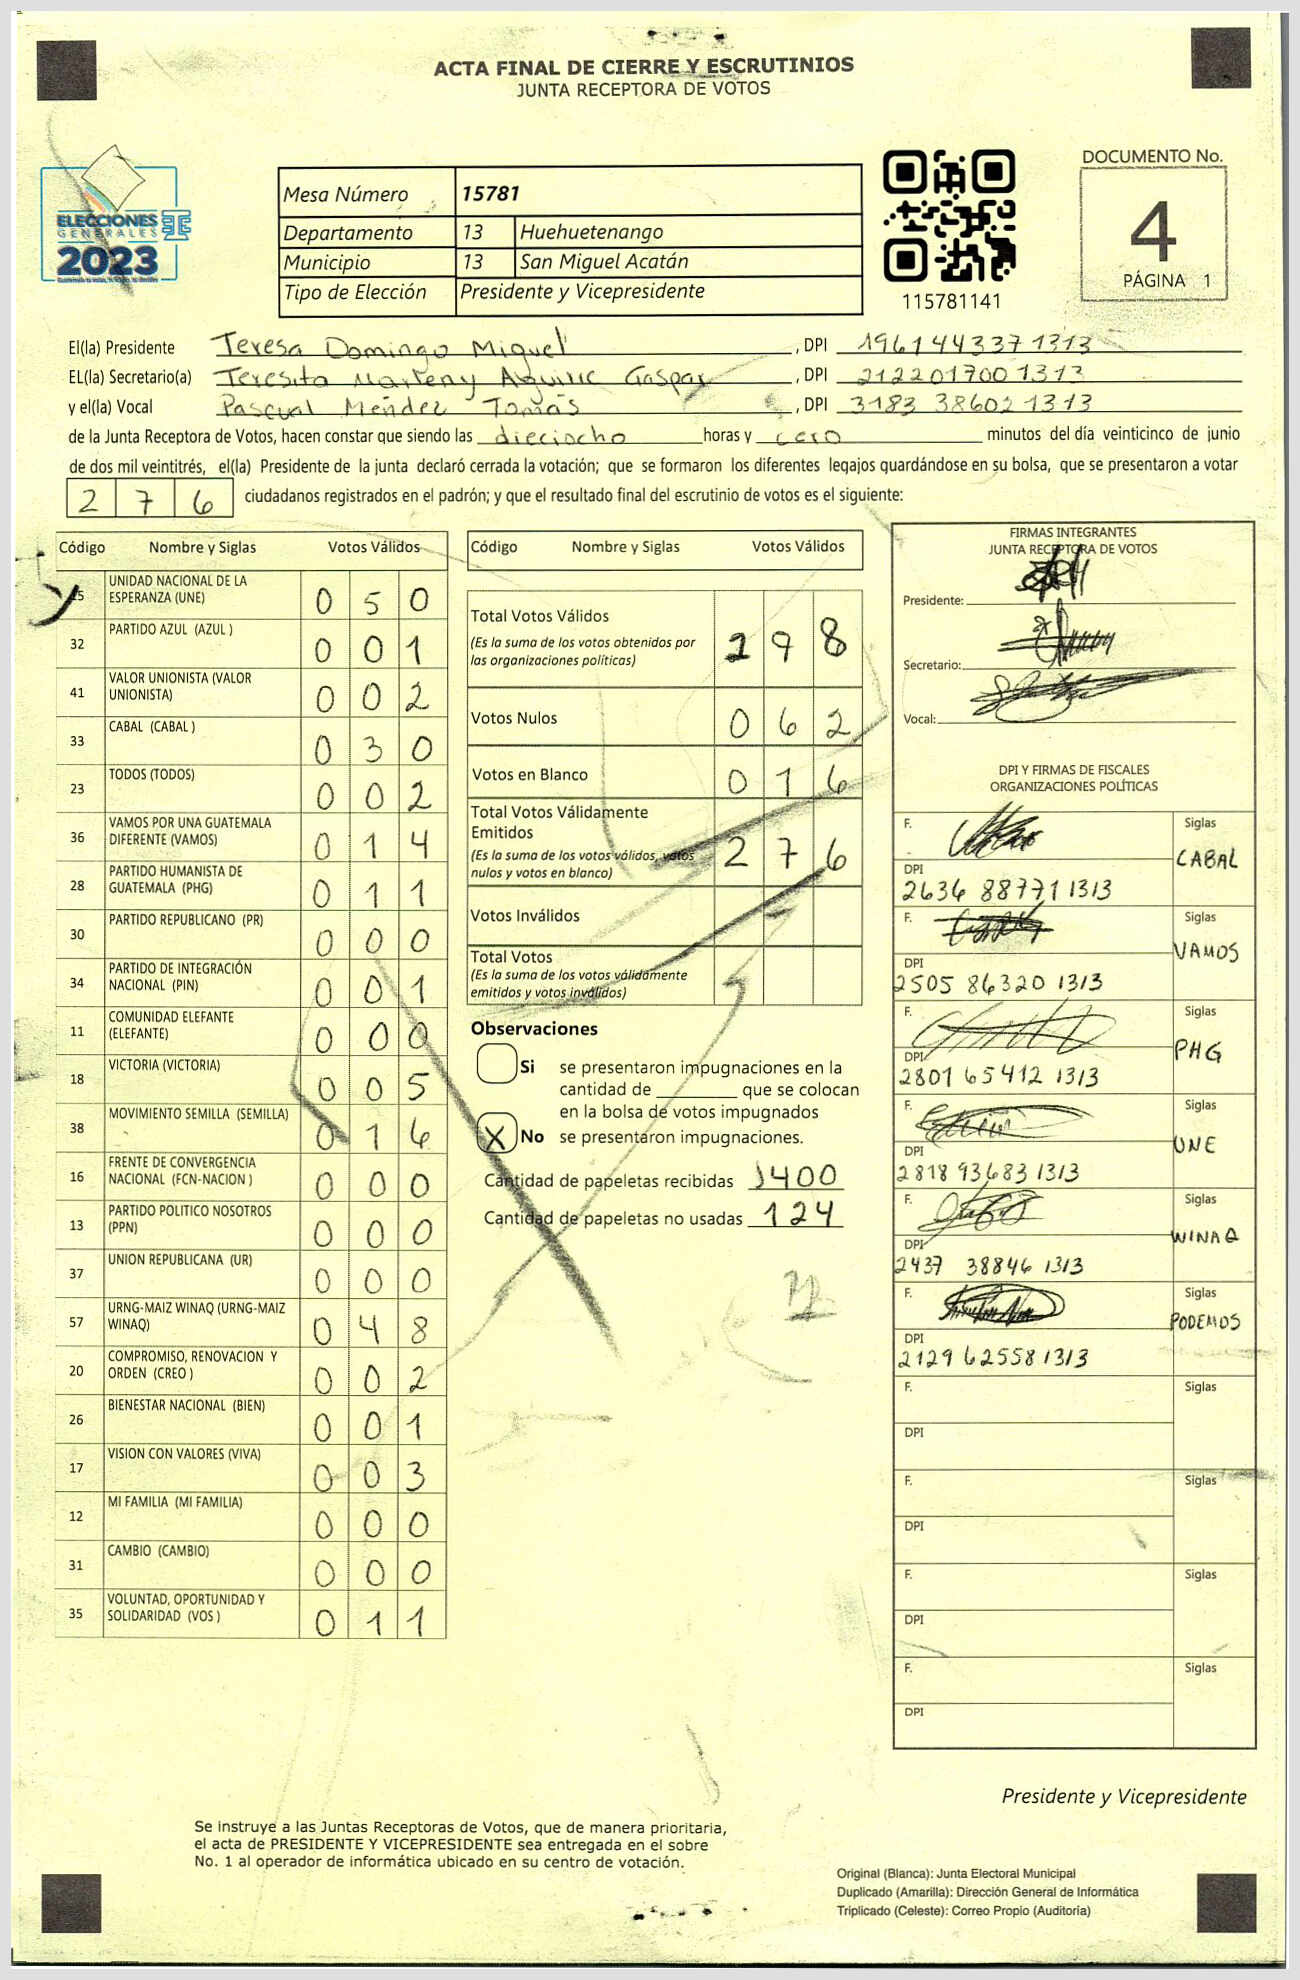 ACTA FINAL DE CIERRE Y ESCRUTINIOS
JUNTA RECEPTORA DE VOTOS
ELECCIONES
GENERALES
2023
Mesa Número 15781
Departamento 13 Huehuetenango
Municipio 13 San Miguel Acatán
Tipo de Elección Presidente y Vicepresidente
115781141
DOCUMENTO No.
4
PÁGINA 1
El(la) Presidente Teresa Domingo Miguel , DPI 196144337 1313
EL(la) Secretario(a) Teresita Marleny Gaspar , DPI 212201700 1313
y el(la) Vocal Pascual Méndez Tomás , DPI 3183 38602 1313
de la Junta Receptora de Votos, hacen constar que siendo las dieciocho horas y cero minutos del día veinticinco de junio
de dos mil veintitrés, el(la) Presidente de la junta declaró cerrada la votación; que se formaron los diferentes legajos guardándose en su bolsa, que se presentaron a votar
2 7 6 ciudadanos registrados en el padrón; y que el resultado final del escrutinio de votos es el siguiente:
Código Nombre y Siglas Votos Válidos
UNIDAD NACIONAL DE LA
ESPERANZA (UNE) 0 5 0
32 PARTIDO AZUL (AZUL ) 0 0 1
41 VALOR UNIONISTA (VALOR
UNIONISTA) 0 0 2
33 CABAL (CABAL ) 0 3 0
23 TODOS (TODOS) 0 0 2
36 VAMOS POR UNA GUATEMALA
DIFERENTE (VAMOS) 0 1 4
28 PARTIDO HUMANISTA DE
GUATEMALA (PHG) 0 1 1
30 PARTIDO REPUBLICANO (PR) 0 0 0
34 PARTIDO DE INTEGRACIÓN
NACIONAL (PIN) 0 0 1
11 COMUNIDAD ELEFANTE
(ELEFANTE) 0 0 0
18 VICTORIA (VICTORIA) 0 0 5
38 MOVIMIENTO SEMILLA (SEMILLA) 0 1 6
16 FRENTE DE CONVERGENCIA
NACIONAL (FCN-NACION ) 0 0 0
13 PARTIDO POLITICO NOSOTROS
(PPN) 0 0 0
37 UNION REPUBLICANA (UR) 0 0 0
57 URNG-MAIZ WINAQ (URNG-MAIZ
WINAQ) 0 4 8
20 COMPROMISO, RENOVACION Y
ORDEN (CREO ) 0 0 2
26 BIENESTAR NACIONAL (BIEN) 0 0 1
17 VISION CON VALORES (VIVA) 0 0 3
12 MI FAMILIA (MI FAMILIA) 0 0 0
31 CAMBIO (CAMBIO) 0 0 0
35 VOLUNTAD, OPORTUNIDAD Y
SOLIDARIDAD (VOS ) 0 1 1
Código Nombre y Siglas Votos Válidos
Total Votos Válidos
(Es la suma de los votos obtenidos por
las organizaciones políticas) 9 8
Votos Nulos 0 6 2
Votos en Blanco 0 1 6
Total Votos Válidamente
Emitidos
(Es la suma de los votos válidos, votos
nulos y votos en blanco) 2 7 6
Votos Inválidos
Total Votos
(Es la suma de los votos válidamente
emitidos y votos inválidos)
Observaciones
Si se presentaron impugnaciones en la
cantidad de ________ que se colocan
en la bolsa de votos impugnados
X No se presentaron impugnaciones.
Cantidad de papeletas recibidas 400
Cantidad de papeletas no usadas 124
FIRMAS INTEGRANTES
JUNTA RECEPTORA DE VOTOS
Presidente:
Secretario:
Vocal:
DPI Y FIRMAS DE FISCALES
ORGANIZACIONES POLÍTICAS
F. Siglas
CABAL
DPI
2636 88771 1313
F. Siglas
VAMOS
DPI
2505 86320 1313
F. Siglas
PHG
DPI
2801 65412 1313
F. Siglas
UNE
DPI
2818 93683 1313
F. Siglas
WINAQ
DPI
2437 38846 1313
F. Siglas
PODEMOS
DPI
2129 62558 1313
F. Siglas
DPI
F. Siglas
DPI
F. Siglas
DPI
F. Siglas
DPI
Presidente y Vicepresidente
Se instruye a las Juntas Receptoras de Votos, que de manera prioritaria,
el acta de PRESIDENTE Y VICEPRESIDENTE sea entregada en el sobre
No. 1 al operador de informática ubicado en su centro de votación.
Original (Blanca): Junta Electoral Municipal
Duplicado (Amarilla): Dirección General de Informática
Triplicado (Celeste): Correo Propio (Auditoría)